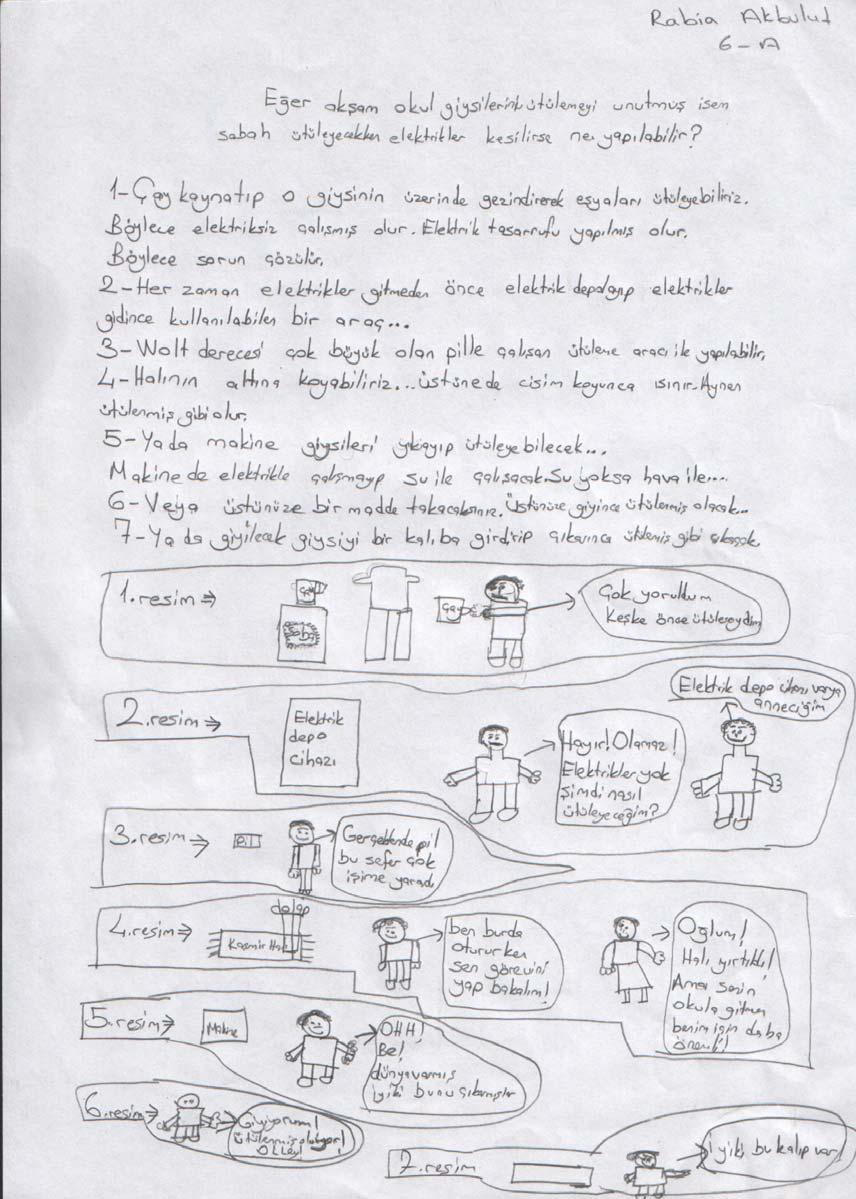 Rabia Akbulut
6-A
Eğer akşam okul giysilerini ütülemeyi unutmuş isem
sabah ütüleyecekken elektrikler kesilirse ne yapılabilir?
1-Çay kaynatıp o giysinin üzerinde gezindirerek eşyaları ütüleyebiliriz.
Böylece elektriksiz çalışmış olur. Elektrik tasarrufu yapılmış olur.
Böylece sorun çözülür.
2-Her zaman elektrikler gitmeden önce elektrik depolayıp elektrikler
gidince kullanılabilen bir araç...
3-Wolt derecesi çok büyük olan pille çalışan ütüleme aracı ile yapılabilir.
4-Halının altına koyabiliriz...üstüne de cisim koyunca ısınır. Aynen
ütülenmiş gibi olur.
5-Ya da makine giysileri yıkayıp ütüleyebilecek...
Makine de elektrikle çalışmayıp su ile çalışacak. Su yoksa hava ile....
6-Veya üstünüze bir madde takacaksınız. Üstünüze giyince ütülenmiş olacak...
7-Ya da giyilecek giysiyi bir kalıba girdirip çıkarınca ütülemiş gibi çıkacak.
1.resim⇒
Çay
Soba
Çay
Çok yoruldum
keşke önce ütüleseydim
2.resim⇒
Elektrik
depo
cihazı
Hayır! Olamaz!
Elektrikler yok
şimdi nasıl
ütüleyeceğim?
Elektrik depo cihazı var ya
anneciğim
3.resim⇒
Pil
Gerçektende pil
bu sefer çok
işime yaradı
4.resim⇒
dolap
Kaşmir Halı
ben burda
otururken
sen görevini
yap bakalım!
Oğlum!
Halı yırtıldı!
Ama senin
okula gitmen
benim için daha
önemli!
5.resim⇒
Makine
OHH!
Be!
dünya varmış
iyiki bunu çıkarmışlar
6.resim⇒
Giyiyorum!
ütülenmiş oluyor!
7.resim
İyiki bu kalıp var!